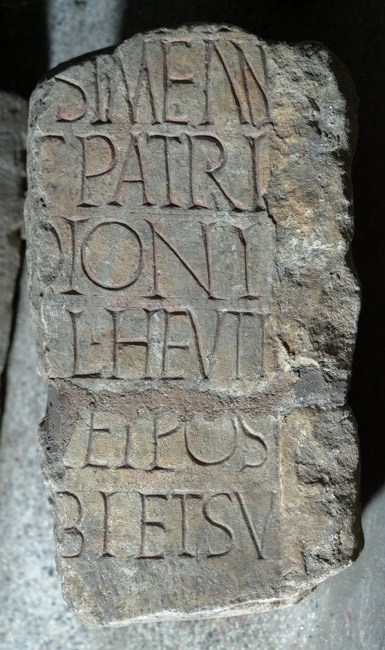 SIMENN
PATRI
DIONI
LHEVTI
ETPOS
BIETSV